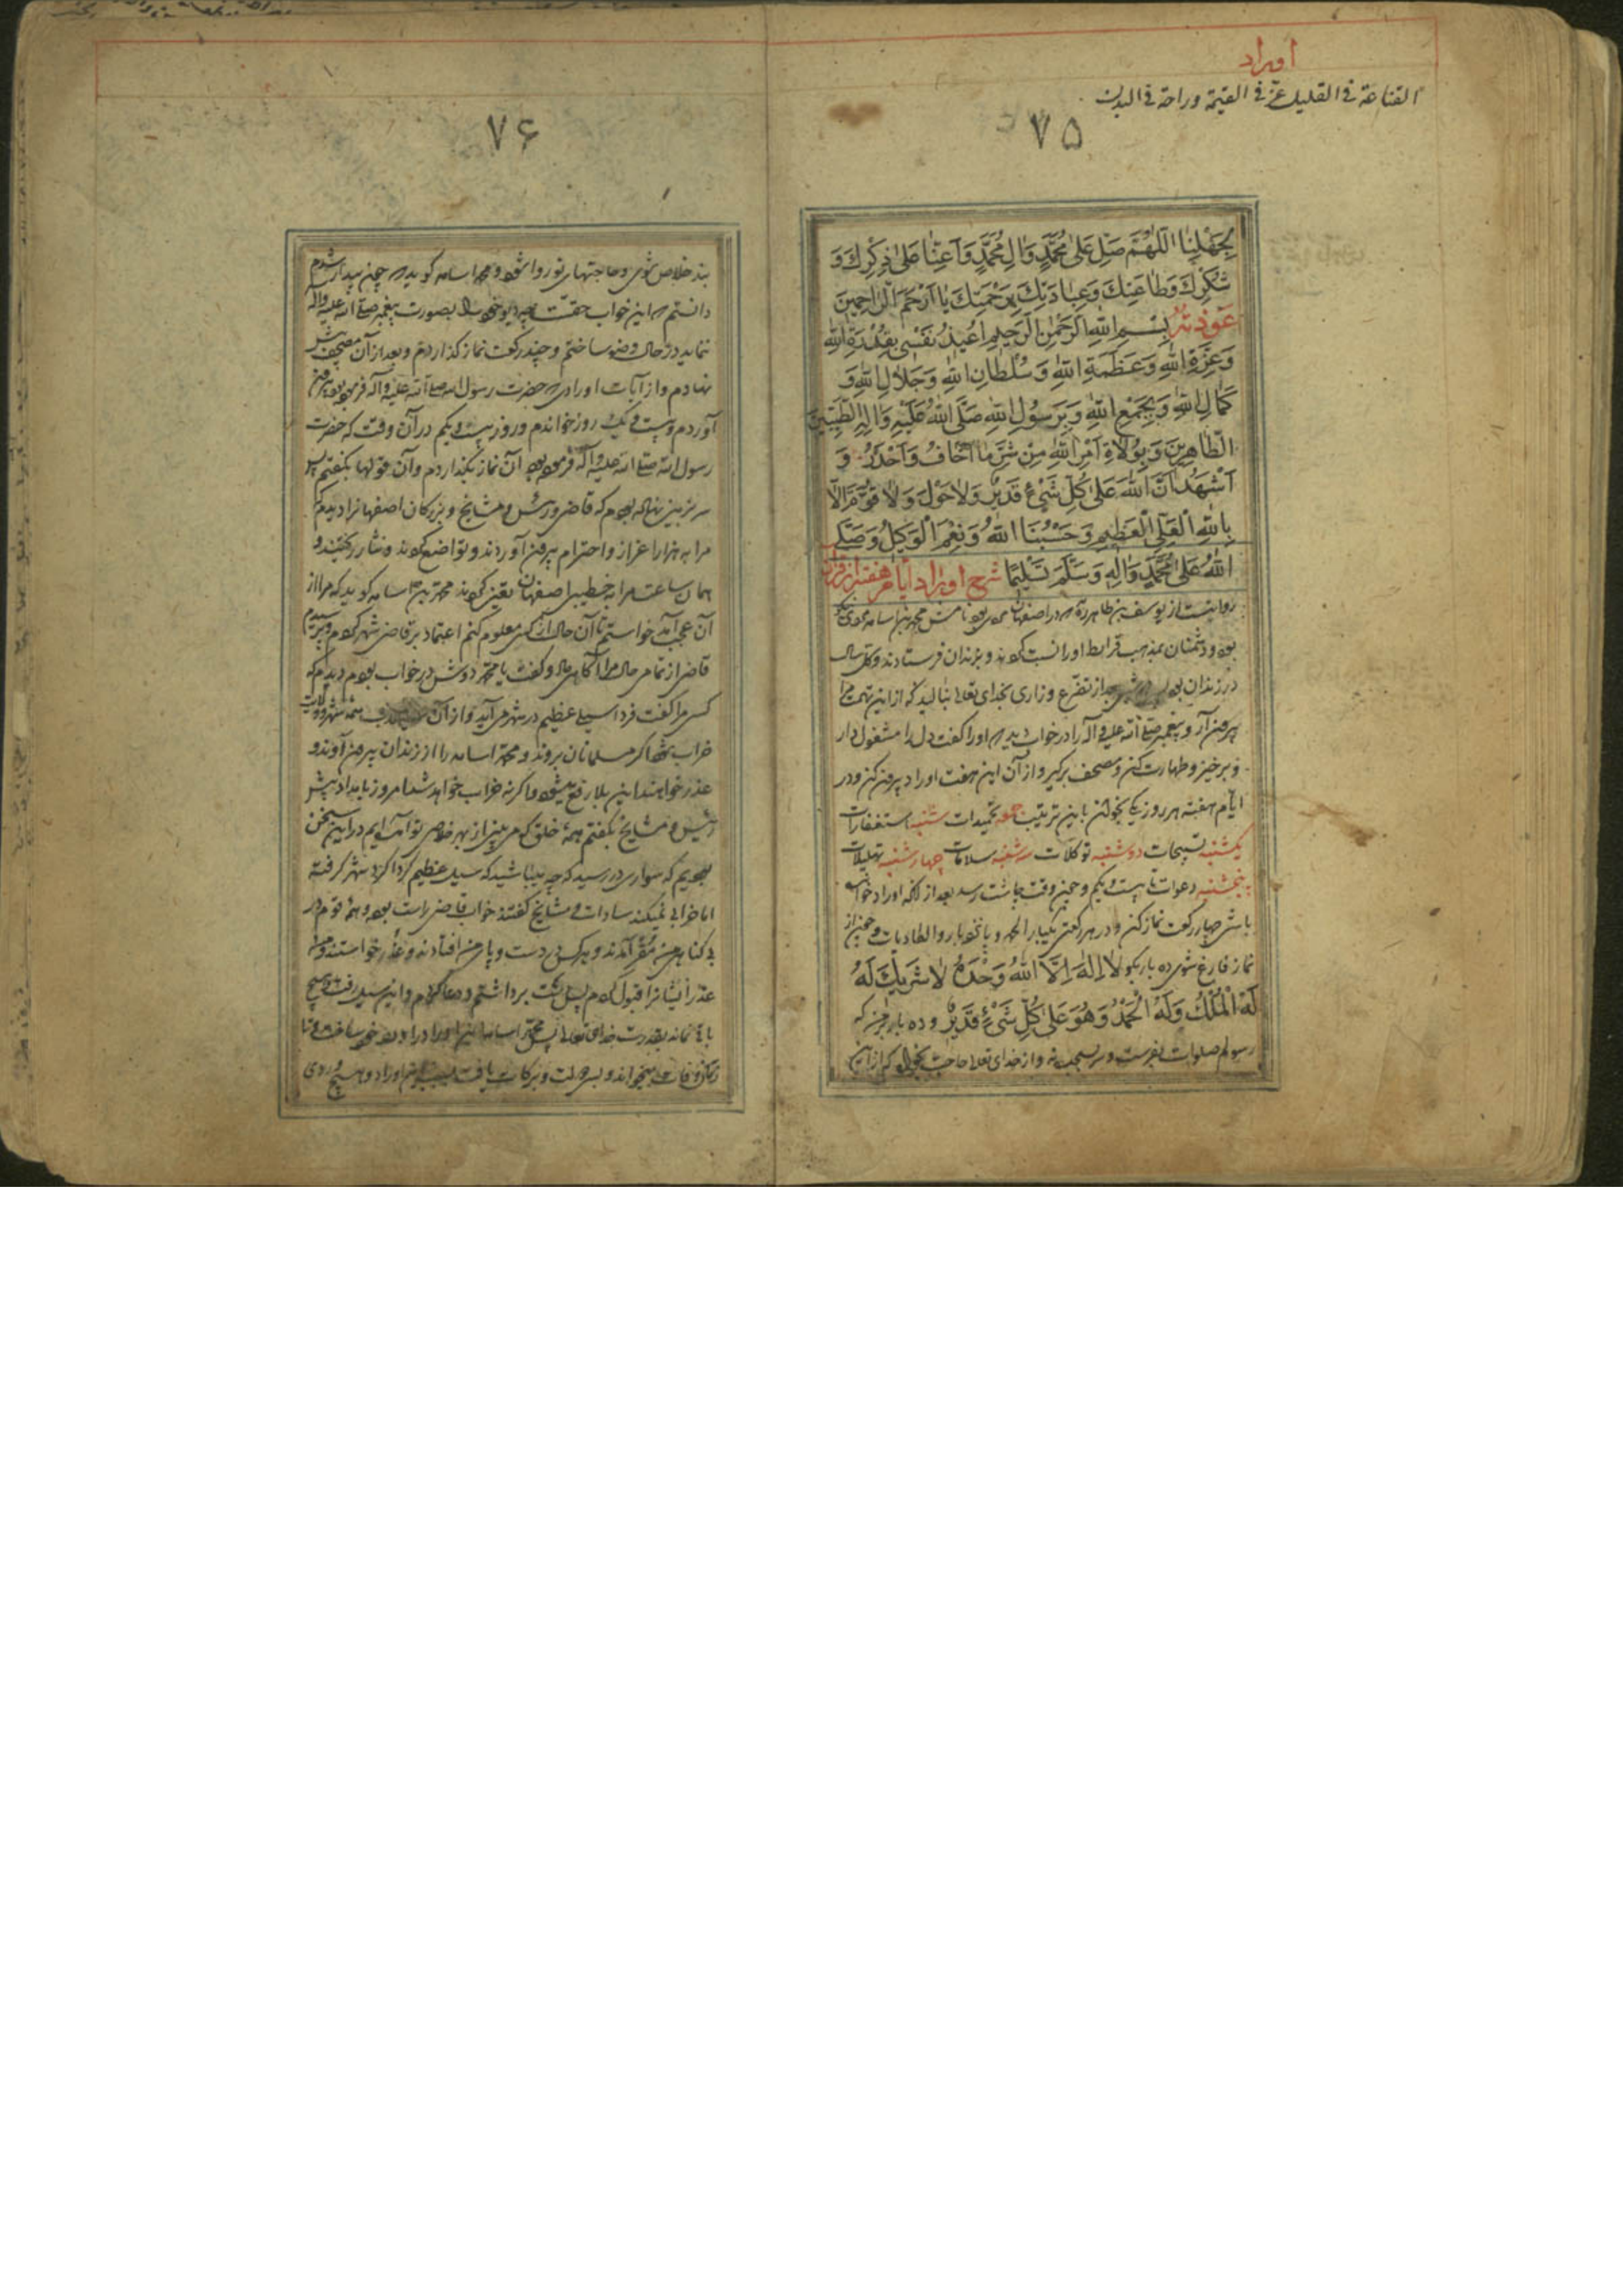 اوراد
القناعة فى القليل عز فى القيمة وراحة فى البدن
۷۵
بِجَهْلِنٰا اَللّٰهُمَّ صَلِّ عَلىٰ مُحَمَّدٍ وَاٰلِ مُحَمَّدٍ وَاَعِنّٰا عَلىٰ ذِكْرِكَ وَ
شُكْرِكَ وَطٰاعَتِكَ وَعِبٰادَتِكَ بِرَحْمَتِكَ يٰا اَرْحَمَ الرّٰاحِمِينَ
عَوْذَتهُ بِسْمِ اللهِ الرَّحْمٰنِ الرَّحيمِ اُعِيذُ نَفْسْى بِقُدْرَةِ اللهِ
وَعِزَّةِ اللهِ وَعَظَمَةِ اللهِ وَسُلْطٰانِ اللهِ وَجَلاٰلِ اللهِ وَ
كَمٰالِ اللهِ وَبِجَمْعِ اللهِ وَبِرَسُولِ اللهِ صَلَّى اللهُ عَلَيْهِ وَاٰلِهِ الطَّيِّبِينَ
الطّٰاهِرِينَ وَبِوُلاٰةِ اَمْرِ اللهِ مِنْ شَرِّ مٰا اَخٰافُ وَاَحْذَرُ وَ
اَشْهَدُ اَنَّ اللهَ عَلىٰ كُلِّ شَىْءٍ قَدِيرٌ وَلاٰ حَوْلَ وَلاٰ قُوَّةَ اِلاّٰ
بِاللهِ الْعَلِىِّ الْعَظِيمِ وَحَسْبُنَا اللهُ وَنِعْمَ الْوَكِيلُ وَصَلَّى
اللهُ عَلىٰ مُحَمَّدٍ وَاٰلِهِ وَسَلَّمَ تَسْلِيمًا شرح اوراد ايام هفته از قرآن
روايتست از يوسف بن طاهر كه در اصفهان بود نامش محمد بن اسامه
بود و دشمنان بمذهب قرامط اورا نسبت كردند و بزندان فرستادند و يكسال
در زندان بود از تضرع وزارى بخداى تعالى بناليد كه از اين تهمت مرا
بيرون آر و پيغمبر صلى الله عليه وآله را در خواب ديد كه اورا گفت دل را مشغول دار
و برخيز و طهارت كن و مصحف برگير و از آن اين هفت اوراد بيرون كن و در
ايّام هفته هر روز يكى بخوان باين ترتيب جمعه تحميدات شنبه استغفارات
يكشنبه تسبيحات دوشنبه توكلات سه شنبه سلامات چهارشنبه تهليلات
پنجشنبه دعوات تا بيست و يكم و چون وقت چاشت رسد بعد از آنكه اوراد خوانده
باشى چهار ركعت نماز كن و در هر ركعتى يكبار الحمد و پانزده بار والعاديات و چون از
نماز فارغ شوى ده بار بگو لاٰ اِلٰهَ اِلاَّ اللهُ وَحْدَهُ لاٰ شَرِيكَ لَهُ
لَهُ الْمُلْكُ وَلَهُ الْحَمْدُ وَهُوَ عَلىٰ كُلِّ شَىْءٍ قَدِيرٌ و ده بار بر من كه
رسولم صلوات بفرست و سر بسجده نه و از خداى تعالى حاجت بخواه كه از آن
۷۶
بند خلاص شوى و حاجتهاى تو روا شود و محمد اسامه گويد كه چون بيدار شدم
دانستم كه اين خواب حقست چه ديو خود را بصورت پيغمبر صلى الله عليه وآله
ننمايد در حال وضو ساختم و چند ركعت نماز گذاردم و بعد از آن مصحف پيش
نهادم و از آيات اورادى كه حضرت رسول الله صلى الله عليه وآله فرموده بود بيرون
آوردم و بيست و يك روز خواندم و روز بيست و يكم در آن وقت كه حضرت
رسول الله صلى الله عليه وآله فرموده بود آن نماز بگذاردم و آن قولها بگفتم پس
سر بزمين نهاده بودم كه قاضى و رئيس و مشايخ و بزرگان اصفهان را ديدم كه
مرا به هزار اعزاز و احترام بيرون آوردند و تواضع كردند و نثار ريختند و
همان ساعت مرا به خطيبى اصفهان تعيين كردند محمد بن اسامه گويد كه مرا از
آن عجب آمد خواستم تا آن حال از كسى معلوم كنم اعتماد بر قاضى شهر كردم و پرسيدم
قاضى از تمامى حال مرا آگاهى داد و گفت يا محمد دوش در خواب بودم ديدم كه
كسى مرا گفت فردا سيلى عظيم در شهر مى آيد و از آن همه شهر و ولايت
خراب شود اگر مسلمانان بروند و محمد اسامه را از زندان بيرون آوردند و
عذر خواهند اين بلا رفع ميشود و اگر نه خراب خواهد شد امروز بامداد پيش
رئيس و مشايخ بگفتم همه خلق كه مى بينى از بهر خلاصى تو آمده ايم در اين سخن
بوديم كه سوارى در رسيد كه چه نشسته باشيد كه سيل عظيم گرداگرد شهر گرفته
اما خرابى نميكند سادات و مشايخ گفتند خواب قاضى راست بود و همه قوم در
بى گناهى من مقر آمدند و هر كس در دست و پاى من افتادند و عذر خواستند و من
عذر ايشانرا قبول كردم پس دست برداشتم و دعا كردم و اين سيل رفت و هيچ
باقى نماند بقدرت خداى تعالى پس محمد اسامه اين اوراد را ورد خود ساخت و تا
زمان وفات ميخواند و بسى دولت و بركات يافت بسبب اين اوراد و هيچ روى